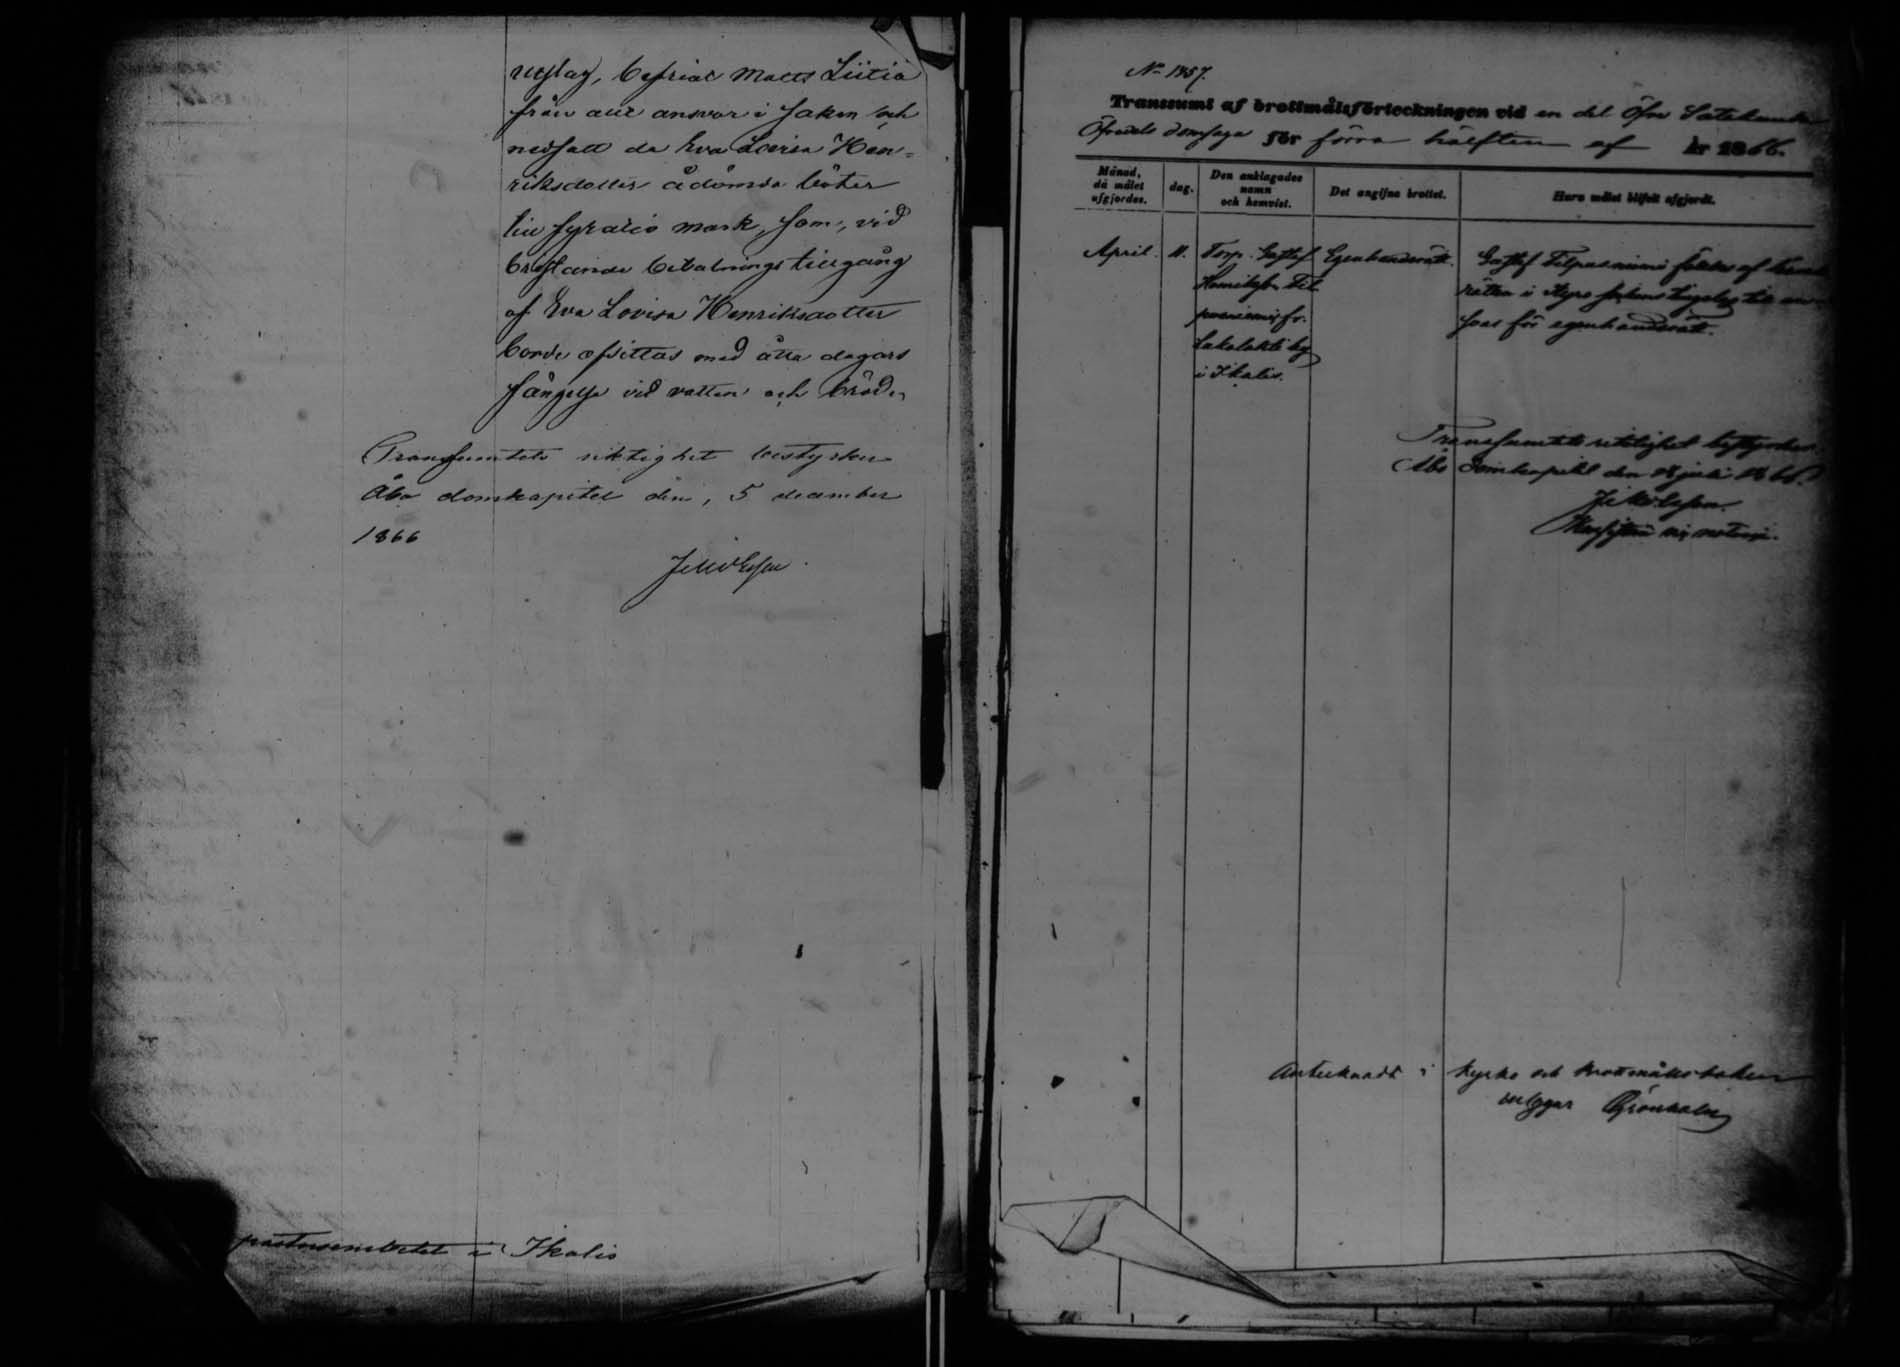 utslag, befriat Matts Liitiä
från allt ansvar i saken och
nedsatt de Eva Lovisa Hen=
riksdotter ådömda böter
till fyratio mark, som, vid
bristande betalningstillgång
af Eva Lovisa Henriksdotter
borde afsittas med åtta dagars
fängelse vid vatten och bröd.
Transumtets riktighet bestyrker
Åbo domkapitel den 5 december
1866
pastorsembetet i Ikalis
No 1857.
Transsumt af brottmålsförteckningen vid en del Öfre Satakunda
Öfredels domsaga för förra hälften af år 1866.
Månad, då målet afgjordes.
dag.
Den anklagades namn och hemvist.
Det angifna brottet.
Huru målet blifvit afgjordt.
April. 11. Torp. Gustaf Egenhandsrätt. Gustaf
Henriksson
fr.
by i Kyro sockens tingslag
i Ikalis. för egenhandsrätt.
Transumtets riktighet bestyrker
Åbo Domkapitel den juli 1866.
Antecknadt i kyrko och brottmålsboken
intygar Grönholm